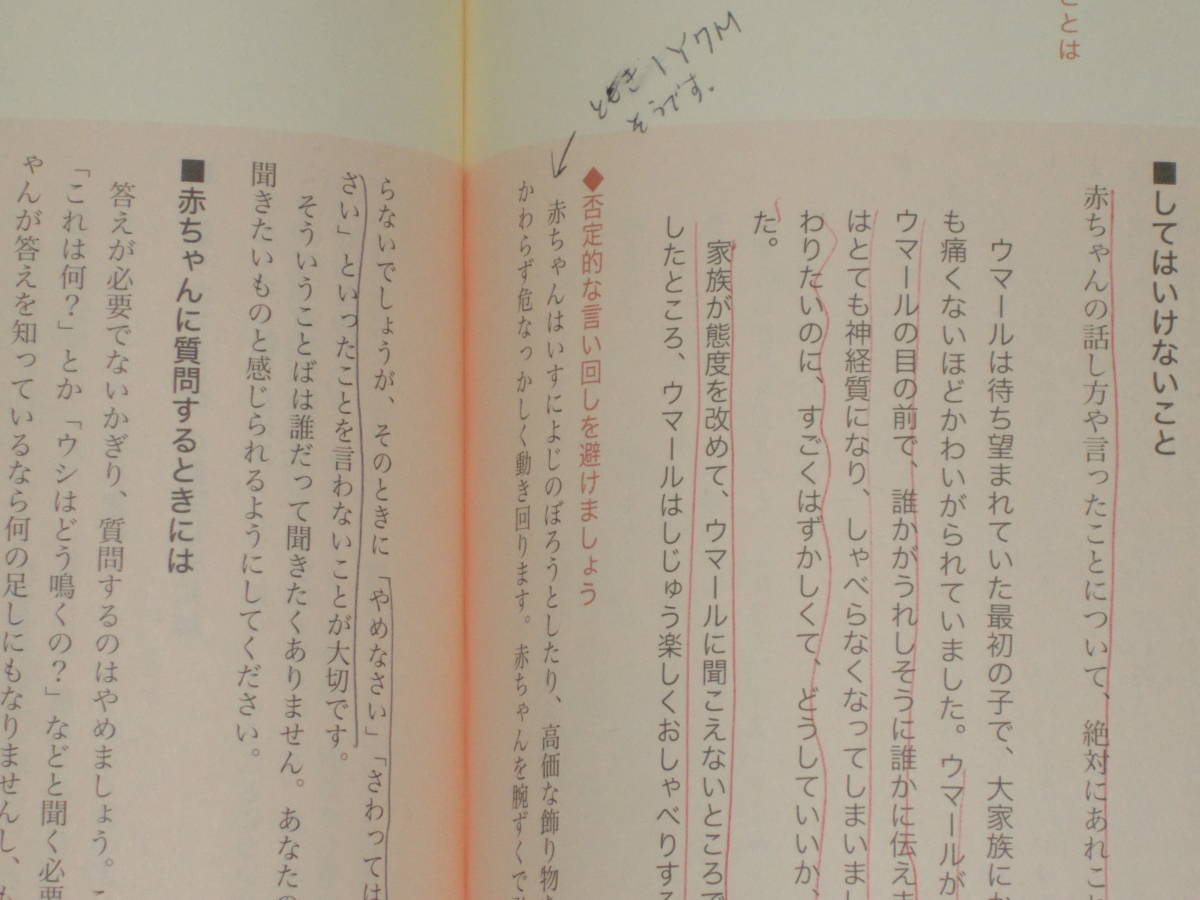 ことは
■してはいけないこと
赤ちゃんの話し方や言ったことについて、絶対にあれこと
ウマールは待ち望まれていた最初の子で、大家族にか
も痛くないほどかわいがられていました。ウマールが
ウマールの目の前で、誰かがうれしそうに誰かに伝えま
はとても神経質になり、しゃべらなくなってしまいまし
わりたいのに、すごくはずかしくて、どうしていいか、
た。
家族が態度を改めて、ウマールに聞こえないところで
したところ、ウマールはしじゅう楽しくおしゃべりする
ともき1Y7M
そうです。
◆否定的な言い回しを避けましょう
赤ちゃんはいすによじのぼろうとしたり、高価な飾り物を
かわらず危なっかしく動き回ります。赤ちゃんを腕ずくで
らないでしょうが、そのときに「やめなさい」「さわっては
さい」といったことを言わないことが大切です。
そういうことばは誰だって聞きたくありません。あなたの
聞きたいものと感じられるようにしてください。
■赤ちゃんに質問するときには
答えが必要でないかぎり、質問するのはやめましょう。こ
「これは何?」とか「ウシはどう鳴くの?」などと聞く必要
ゃんが答えを知っているなら何の足しにもなりませんし、も